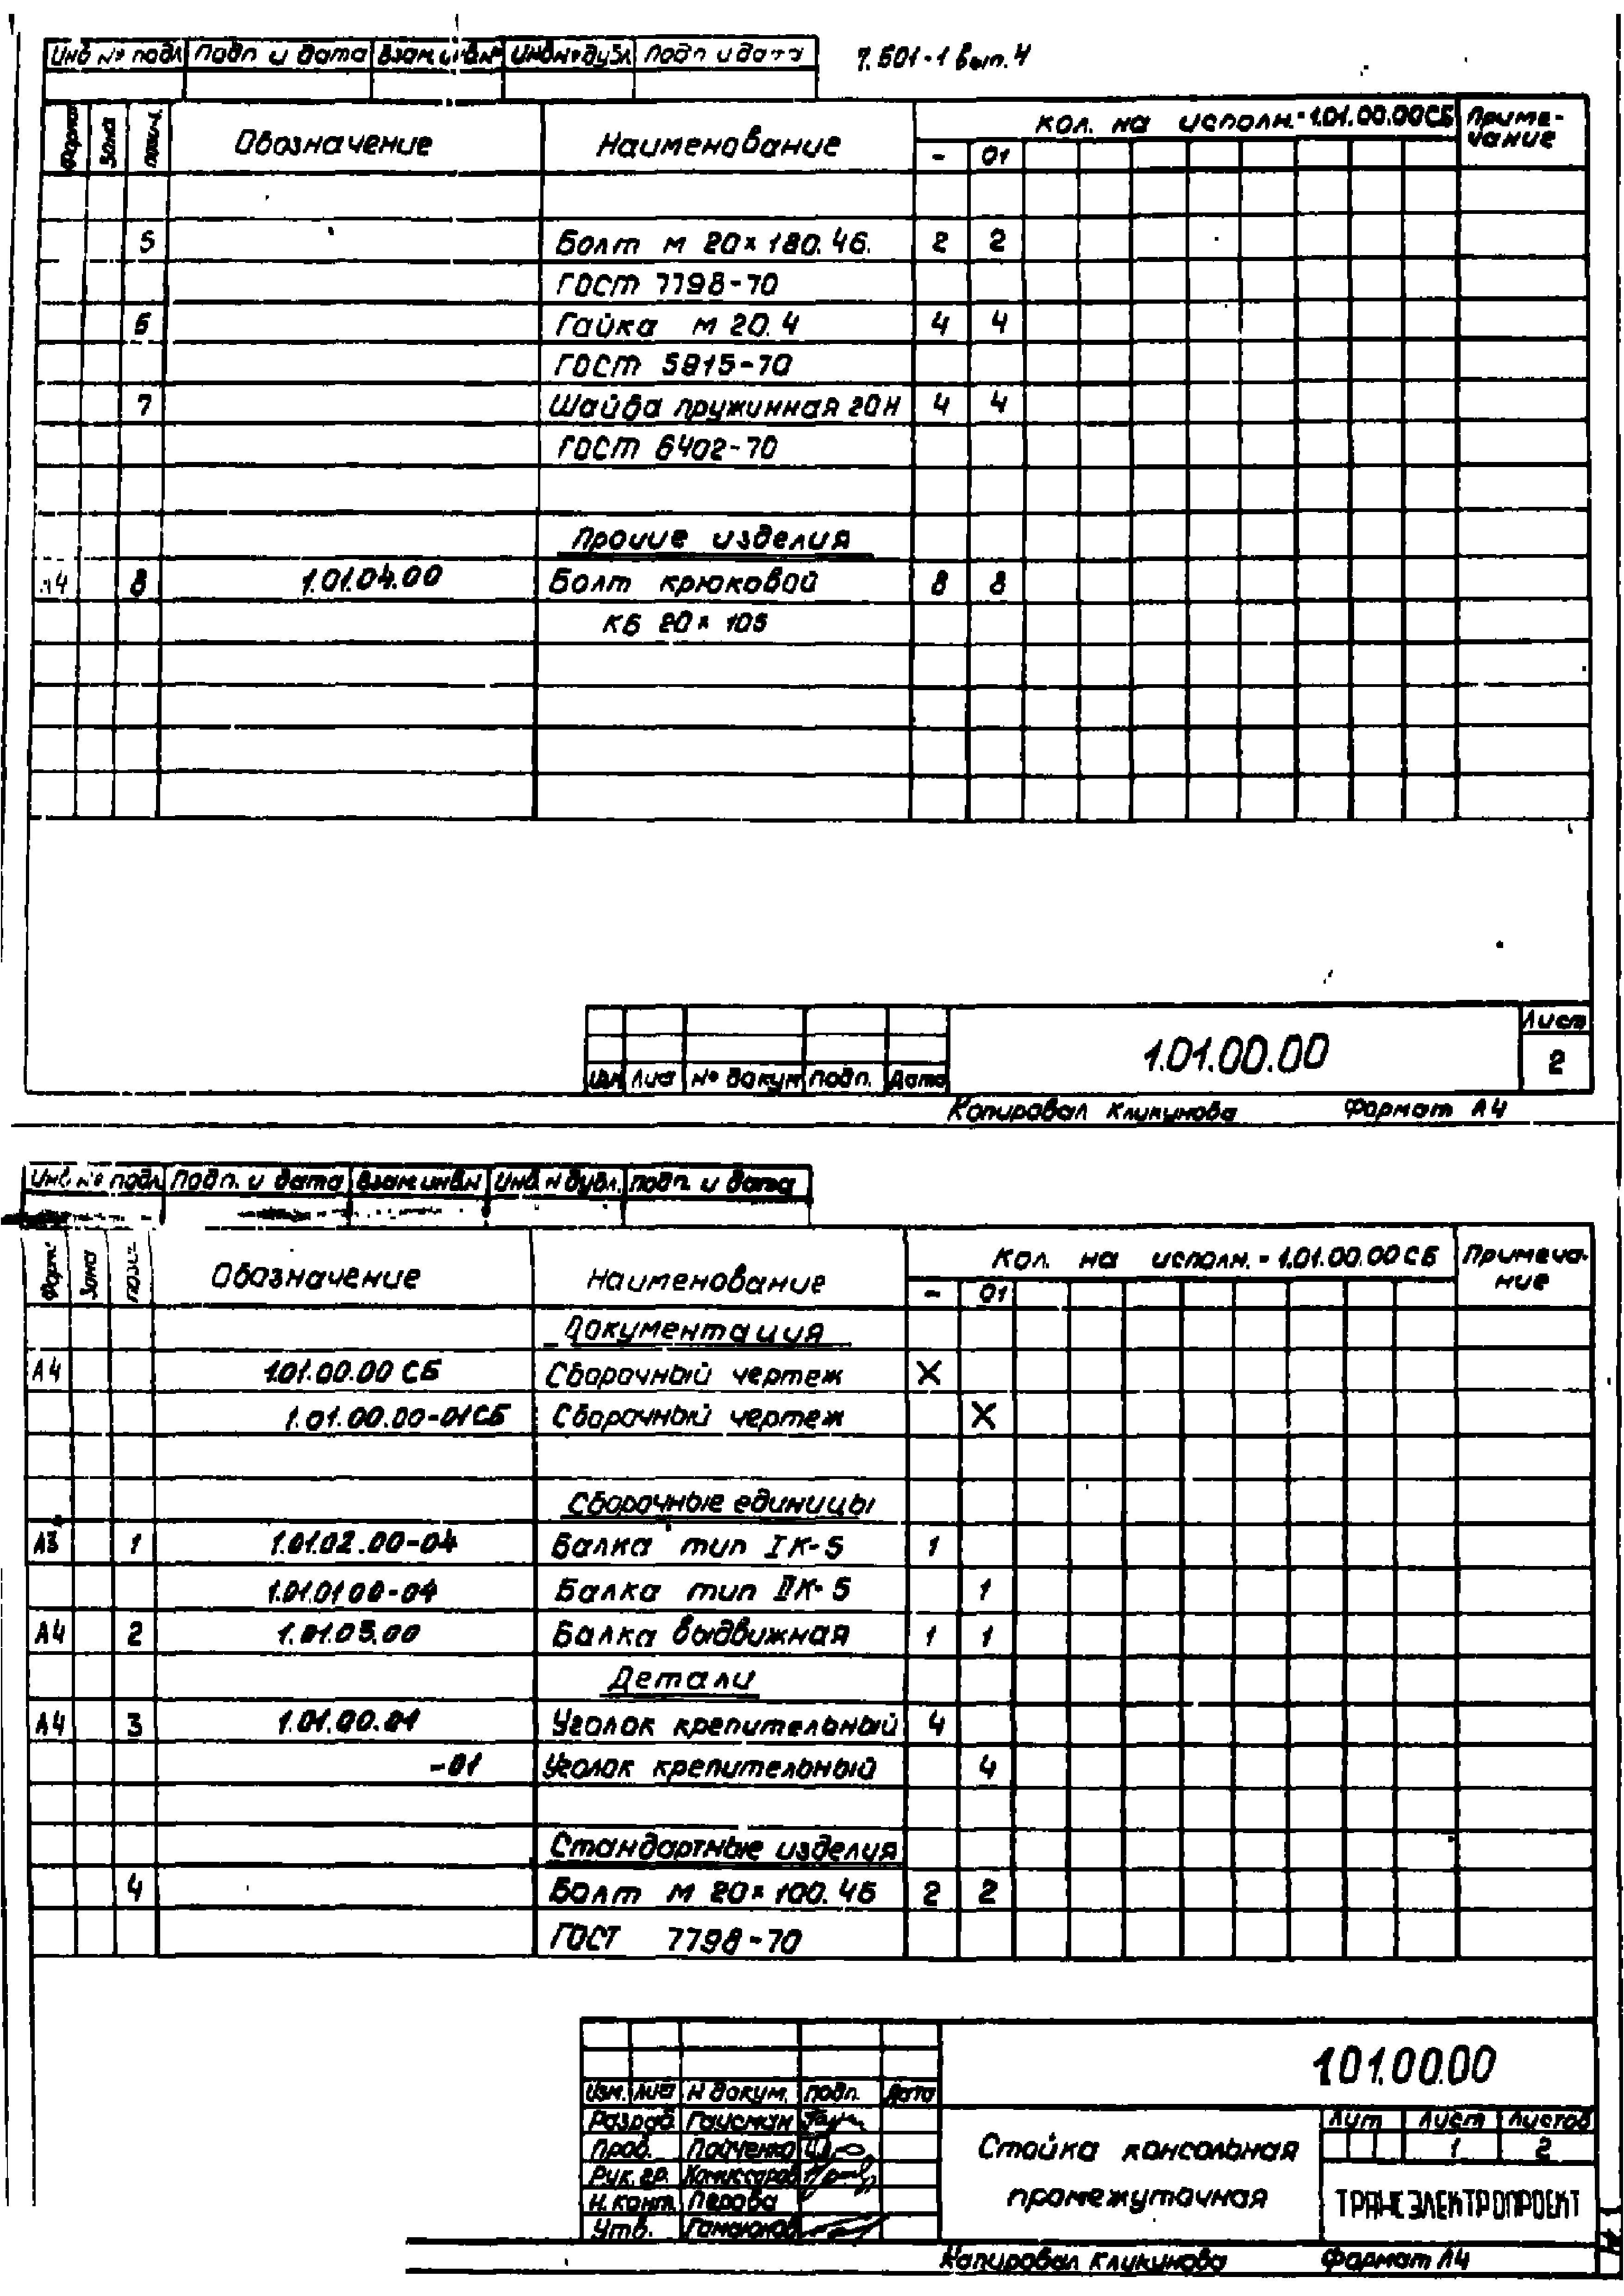 Инв № подл Подп и дата Взам инв № Инв № дубл Подп и дата 7.501-1 вып. 4
Форма Зона Обозначение Наименование кол. на исполн.-1.01.00.00СБ Приме-
чание
- 01
5 Болт м 20×180.46. 2 2
ГОСТ 7798-70
6 Гайка м 20.4 4 4
ГОСТ 5915-70
7 Шайба пружинная 20Н 4 4
ГОСТ 6402-70
Прочие изделия
А4 8 1.01.04.00 Болт крюковой 8 8
КБ 20×105
1.01.00.00 Лист
2
Изм Лист № докум подп. Дата
Копировал Кликунова Формат А4
Инв № подл Подп. и дата Взам инв.№ Инв № дубл. подп. и дата
Форм. Зона поз. Обозначение Наименование Кол. на исполн.-1.01.00.00СБ Примеча-
ние
- 01
Документация
А4 1.01.00.00 СБ Сборочный чертеж X
1.01.00.00-01СБ Сборочный чертеж X
Сборочные единицы
А3 1 1.01.02.00-04 Балка тип IК-5 1
1.01.01 00-04 Балка тип IIК-5 1
А4 2 1.01.03.00 Балка выдвижная 1 1
Детали
А4 3 1.01.00.01 Уголок крепительный 4
-01 Уголок крепительный 4
Стандартные изделия
4 Болт м 20×100.46 2 2
ГОСТ 7798-70
1.01.00.00
Изм. Лист № докум. подп. Дата
Разраб Гаисман Стойка консольная Лит Лист Листов
Пров. 1 2
Рук. гр. Комиссаров промежуточная ТРАНСЭЛЕКТРОПРОЕКТ
Н. конт. Перова
Утв.
Копировал Кликунова Формат А4